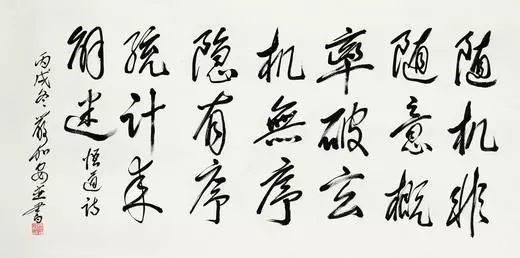 随机非
随意概
率破玄
机無序
隐有序
统计来
解迷
悟道诗
丙戌冬嚴加安並書